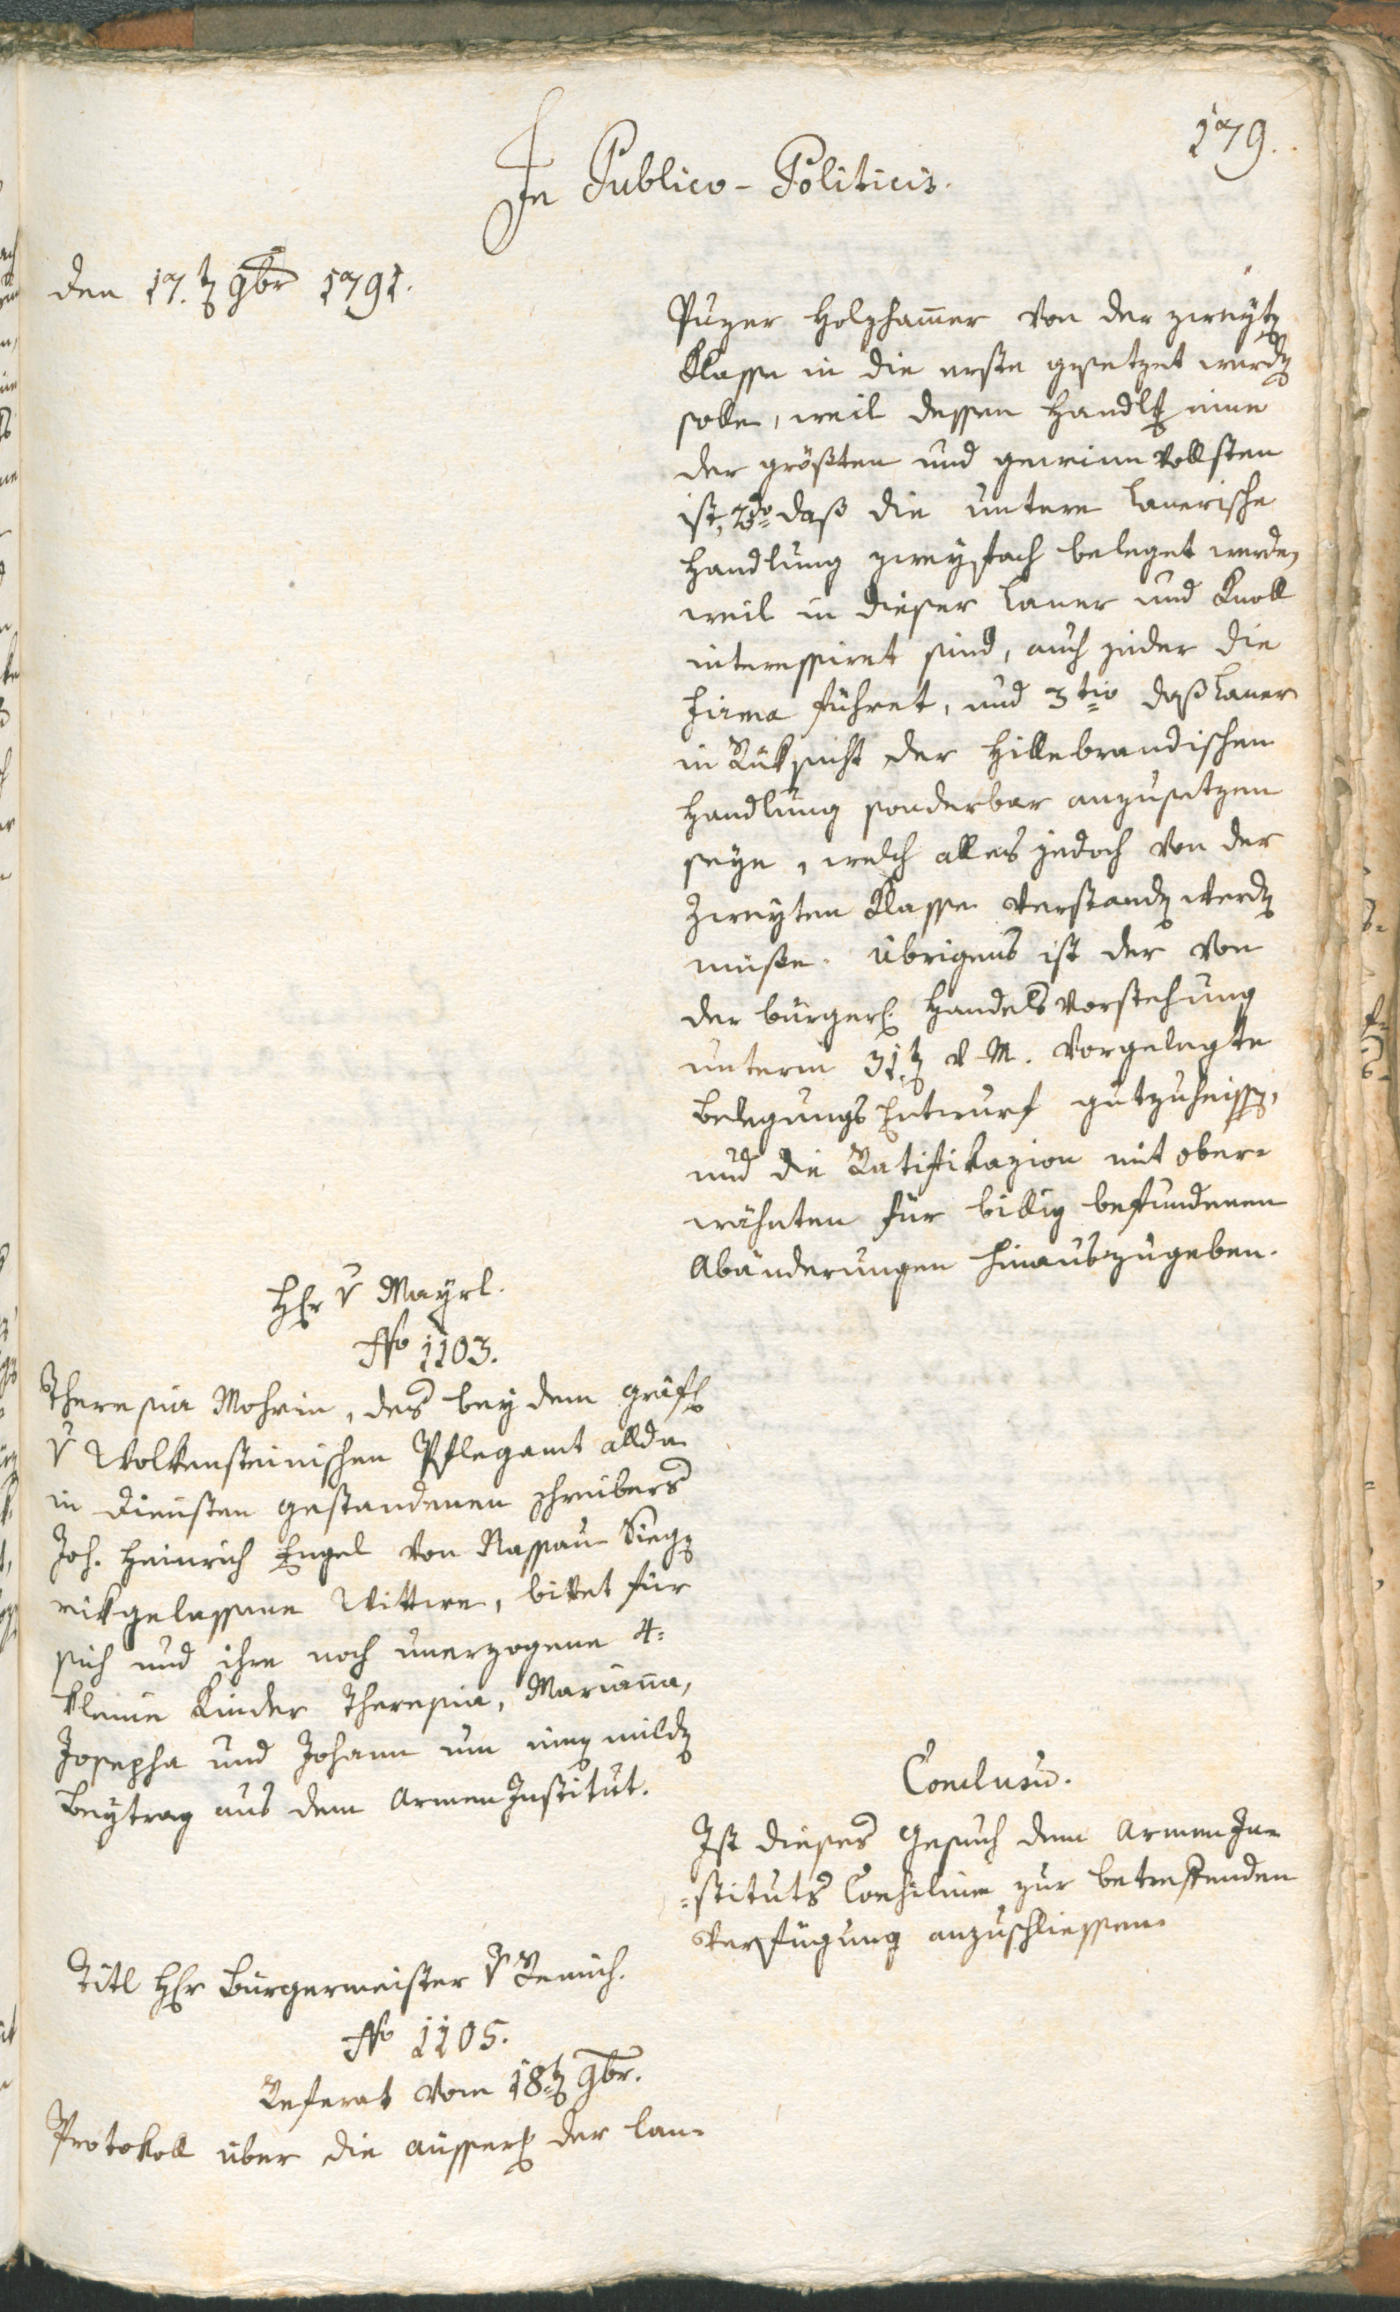 179.
In Publico-Politicis.
den 17.t 9br 1791.
Puzer Holzhamer von der zweyt
Klasse in die erste gesetzet werd
solle, weil dessen Handlg eine
der größten und gewinnvollsten
ist, 2do daß die untere Lanerische
Handlung zweyfach beleget werde,
weil in dieser Laner und Knoll
interessiret sind, auch jeder die
Firma führet, und 3tio daß Laner
in Rüksicht der Hillebrandischen
Handlung sonderbar anzusetzen
seye, welch alles jedoch von der
zweyten Klasse verstand werd
müße. Übrigens ist der von
der bürgerl. Handelsvorstehung
unterm 31.t v. M. vorgelegte
Belegungs Entwurf gutzuheiss,
und die Ratifikazion mit ober-
wähnten für billig befundenen
Abänderungen hinauszugeben.
Hr v Mayrl.
No 1103.
Theresia Mohrin, des bey dem gräfl
v Wolkensteinischen Pflegamt allda
in Diensten gestandenen Schreibers
Joh. Heinrich Engel von Nassau Sieg
rükgelassene Wittwe, bittet für
sich und ihre noch unerzogene 4:
kleine Kinder Theresia, Marianna,
Josepha und Johann um ein mild
Beytrag aus dem Armen Institut.
Conclusu.
Ist dieses Gesuch dem Armen In-
=stituts Consilium zur betreffenden
Verfügung anzuschliessen.
Titl Hr Bürgermeister v Remich.
No 1105.
Referat vom 18.t 9br.
Protokoll über die äusserl der lan-